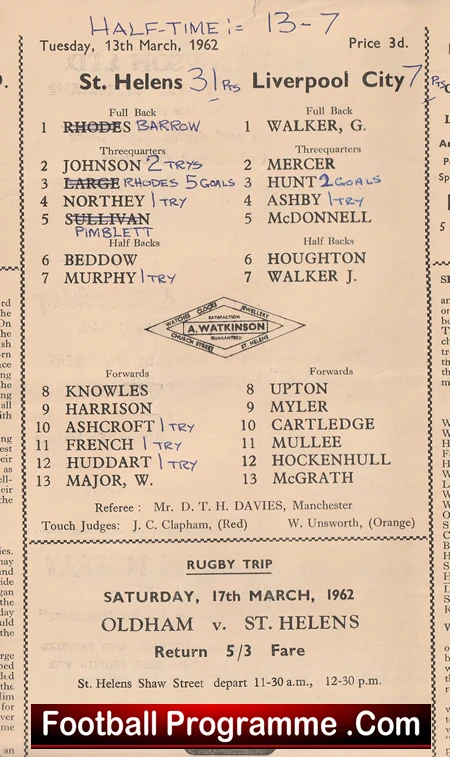 HALF-TIME:= 13-7
Tuesday, 13th March, 1962 Price 3d.
St. Helens 31 Pts Liverpool City 7 Pts
Full Back Full Back
1 RHODES BARROW 1 WALKER, G.
Threequarters Threequarters
2 JOHNSON 2 TRYS 2 MERCER
3 LARGE RHODES 5 GOALS 3 HUNT 2 GOALS
4 NORTHEY 1 TRY 4 ASHBY 1 TRY
5 SULLIVAN 5 McDONNELL
PIMBLETT
Half Backs Half Backs
6 BEDDOW 6 HOUGHTON
7 MURPHY 1 TRY 7 WALKER J.
WATCHES CLOCKS JEWELLERY
SATISFACTION
A. WATKINSON
GUARANTEED
CHURCH STREET ST. HELENS
Forwards Forwards
8 KNOWLES 8 UPTON
9 HARRISON 9 MYLER
10 ASHCROFT 1 TRY 10 CARTLEDGE
11 FRENCH 1 TRY 11 MULLEE
12 HUDDART 1 TRY 12 HOCKENHULL
13 MAJOR, W. 13 McGRATH
Referee : Mr. D. T. H. DAVIES, Manchester
Touch Judges: J. C. Clapham, (Red) W. Unsworth, (Orange)
RUGBY TRIP
SATURDAY, 17TH MARCH, 1962
OLDHAM v. ST. HELENS
Return 5/3 Fare
St. Helens Shaw Street depart 11-30 a.m., 12-30 p.m.
Football Programme .Com